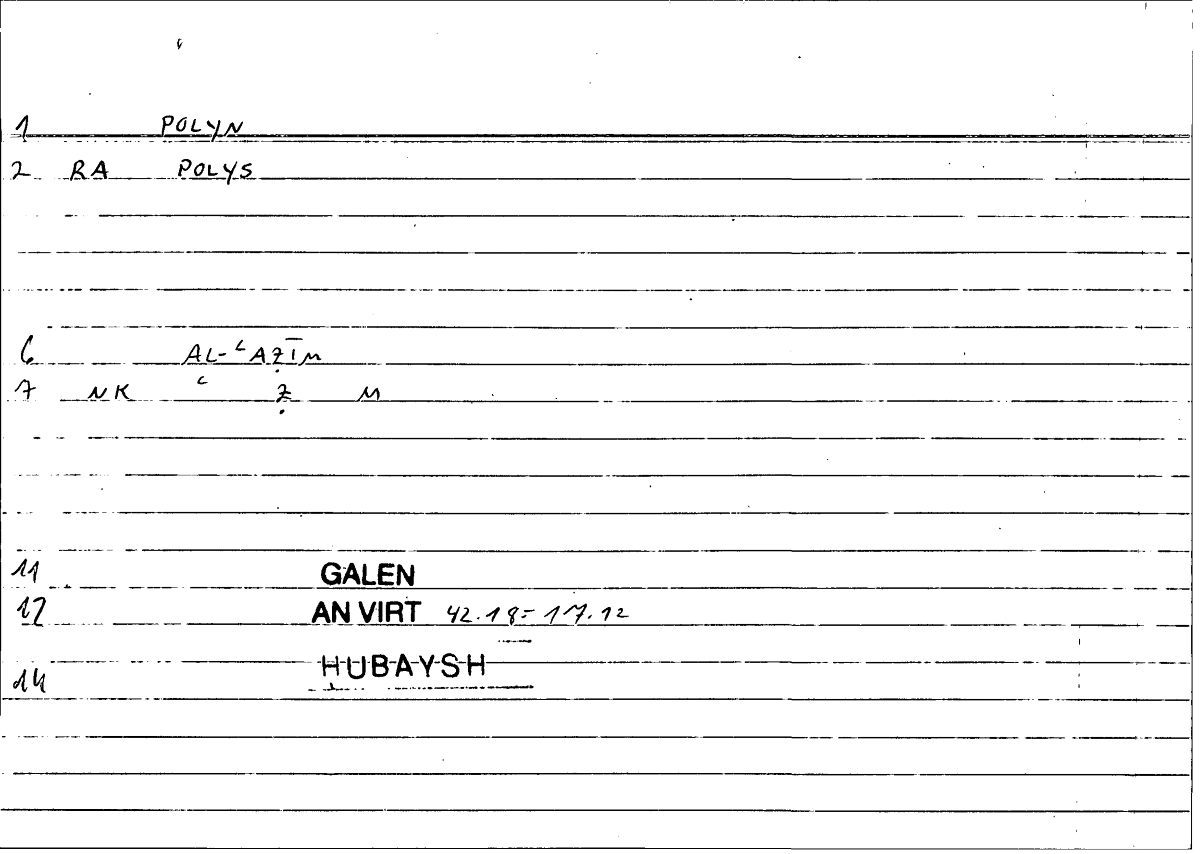 1 POLYN
2 RA POLYS
6 AL-ʿAẒĪM
7 NK ʿ Ẓ M
11 GALEN
12 AN VIRT 42.18 = 17.12
14 ḤUBAYSH